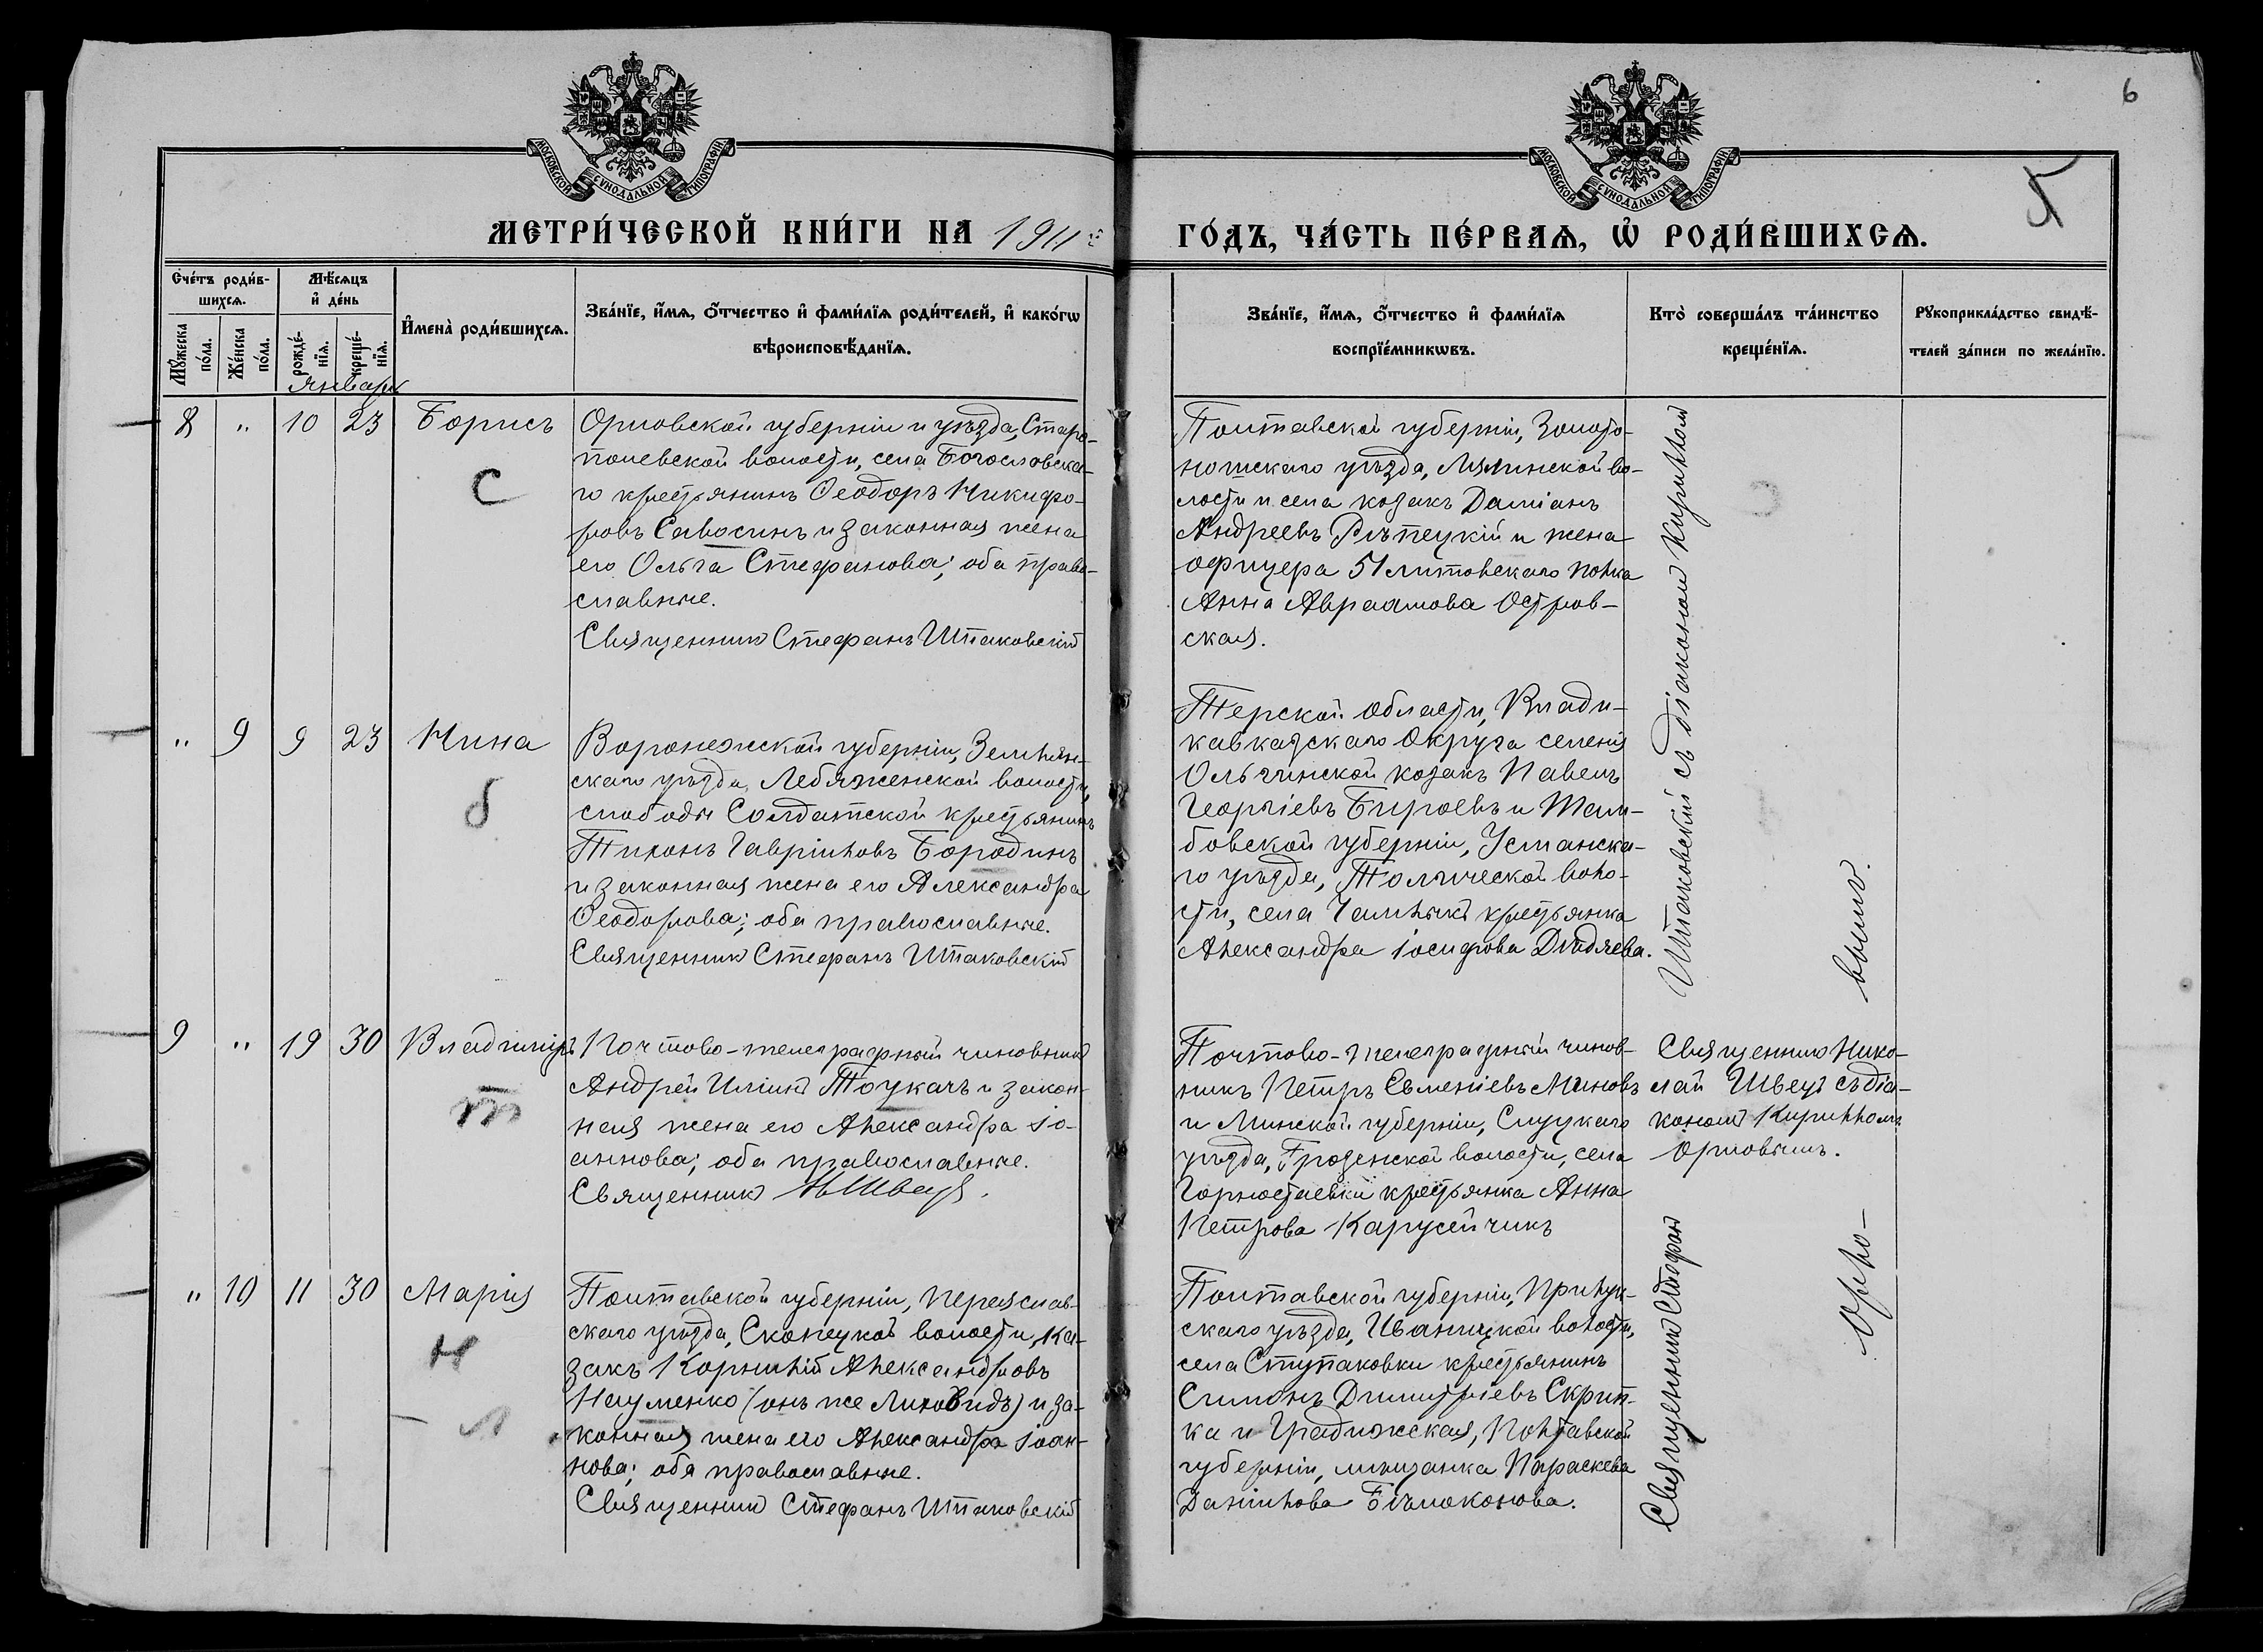 6
5
МОСКОВСКОЙ СѴНОДАЛЬНОЙ ТИПОГРАФІИ
МОСКОВСКОЙ СѴНОДАЛЬНОЙ ТИПОГРАФІИ
МЕТРИ́ЧЕСКОЙ КНИ́ГИ НА 1911 й
ГО́ДЪ, ЧА́СТЬ ПЕ́РВАѦ, Ѡ РОДИ́ВШИХСѦ.
Сче́тъ роди́в-
шихсѧ.
Мꙋ́жеска по́ла.
Же́нска по́ла.
Мѣ́сѧцъ
и҆ де́нь
рожде́-нїѧ.
креще́-нїѧ.
И҆мена̀ роди́вшихсѧ.
Зва́нїе, и҆́мѧ, ѻ҆́тчество и҆ фами́лїѧ роди́телей, и҆ како́гѡ
вѣроисповѣ́данїѧ.
Зва́нїе, и҆́мѧ, ѻ҆́тчество и҆ фами́лїѧ
воспрїе́мникѡвъ.
Кто̀ соверша́лъ та́инство
креще́нїѧ.
Рꙋкоприкла́дство свидѣ́-
телей за́писи по жела́нїю.
Январь
8 " 10 23 Борисъ
С
Орловской губерніи и уѣзда, Старо-
полевской волости, села Богословска-
го крестьянинъ Ѳеодоръ Никифо-
ровъ Савосинъ и законная жена
его Ольга Стефанова; оба право-
славные.
Священникъ Стефанъ Штаковскій
Полтавской губерніи, Золото-
ношскаго уѣзда, Лялинской во-
лости и села козакъ Даміанъ
Андреевъ Рѣпецкій и жена
офицера 51 Литовскаго полка
Анна Авраамова Остров-
ская.
" 9 9 23 Нина
б
Воронежской губерніи, Землян-
скаго уѣзда, Лебяженской волости,
слободы Солдатской крестьянинъ
Тихонъ Гавріиловъ Бородинъ
и законная жена его Александра
Ѳеодорова; оба православные.
Священникъ Стефанъ Штаковскій
Терской области, Влади-
кавказскаго Округа селенія
Ольгинской козакъ Павелъ
Георгіевъ Бироевъ и Там-
бовской губерніи, Усманска-
го уѣзда, волo-
сти, села Чамлыкъ крестьянка
Александра Іосифова
9 " 19 30 Владиміръ
т
Почтово-телеграфный чиновникъ
Андрей Иліинъ Толкачъ и закон-
ная жена его Александра Іо-
аннова; оба православные.
Священникъ Н Швецъ.
Почтово-телеграфный чинов-
никъ Петръ Евменіевъ Миновъ
и Минской губерніи, Слуцкаго
уѣзда, Грозенской волости, села
Горностаевки крестьянка Анна
Петрова Карусейчикъ
Священникъ Нико-
лай Швецъ съ діа-
кономъ Кирилломъ
Орловымъ.
" 10 11 30 Марія
н
л
Полтавской губерніи, Переяслав-
скаго уѣзда, Скопецкой волости, ка-
закъ Корнилій Александровъ
Науменко (онъ же Лиховидъ) и за-
конная жена его Александра Іоан-
нова; оба православные.
Священникъ Стефанъ Штаковскій
Полтавской губерніи, Прилук-
скаго уѣзда, Иваницкой волости,
села Ступаковки крестьянинъ
Симонъ Димитріевъ Скрип-
ка и Градижская, Полтавской
губерніи, мѣщанка Параскева
Даніилова Бѣлоконова.
Священникъ Стефанъ
Штаковскій съ діакономъ Кирилломъ
Орло-
вымъ.